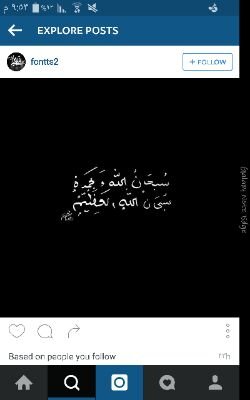 ٩:٥٣ م
EXPLORE POSTS
fontts2
+ FOLLOW
سُبحَانُ الله وَ بِحَمدِهِ
سُبحَان اللهِ العَظِيْمِ
Based on people you follow